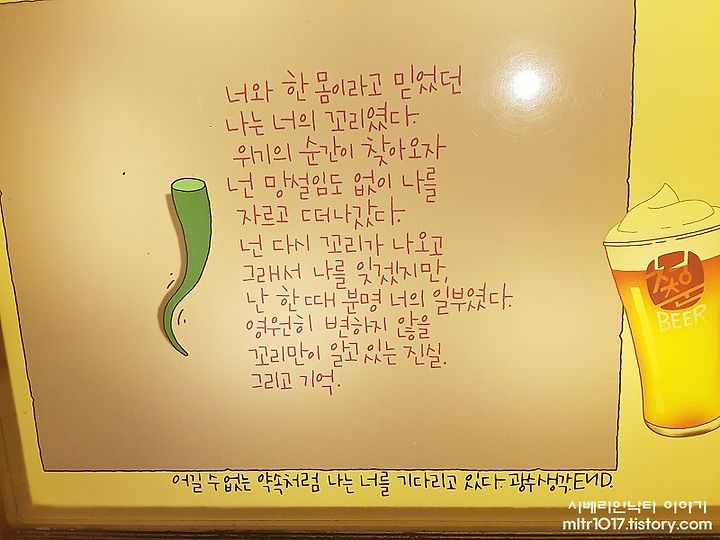 너와 한 몸이라고 믿었던
나는 너의 꼬리였다.
위기의 순간이 찾아오자
넌 망설임도 없이 나를
자르고 떠나갔다.
넌 다시 꼬리가 나오고
그래서 나를 잊겠지만,
난 한때 분명 너의 일부였다.
영원히 변하지 않을
꼬리만이 알고있는 진실.
그리고 기억.
BEER
어길 수 없는 약속처럼 나는 너를 기다리고 있다. 광수생각.END.
시베리안낙타 이야기
mltr1017.tistory.com